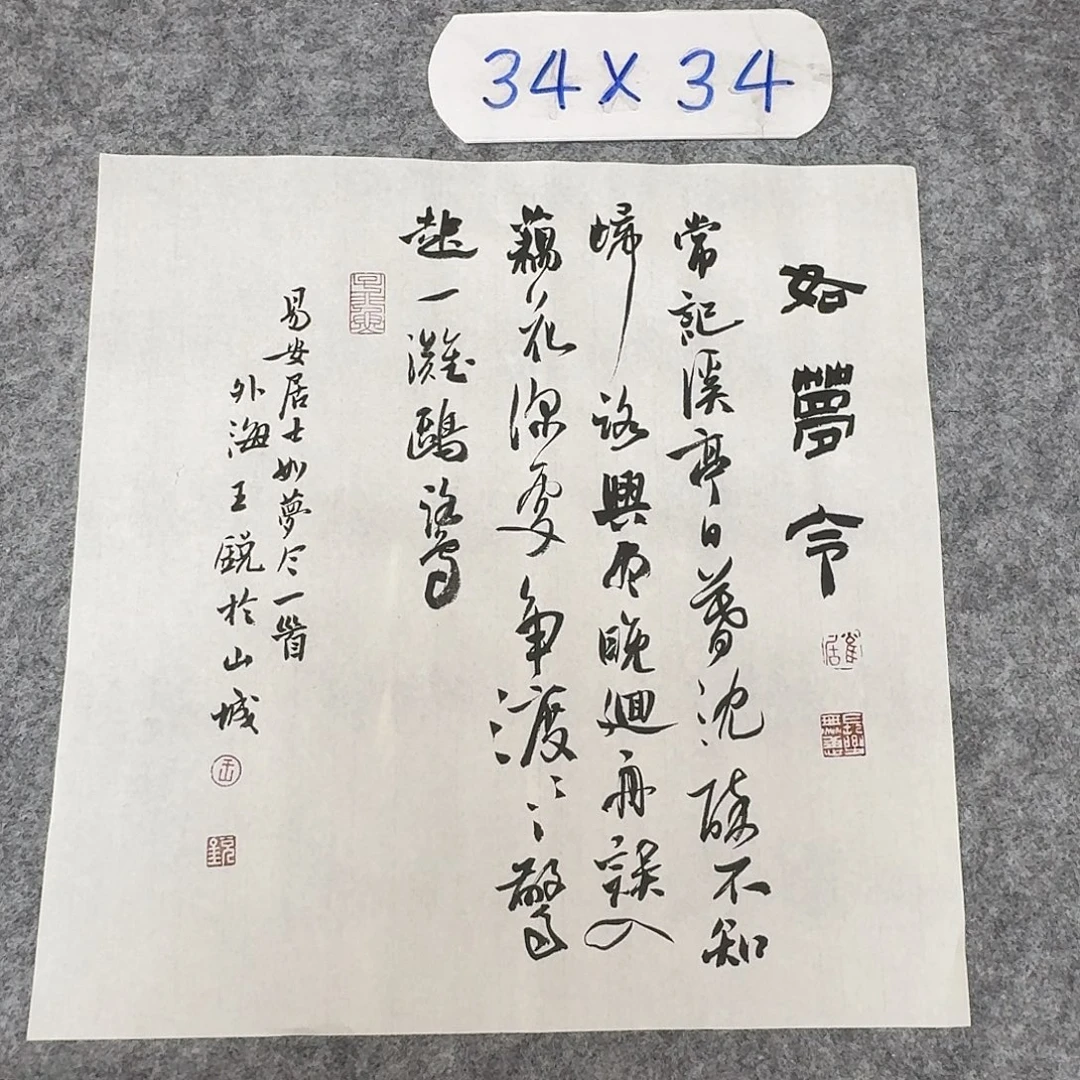 34×34
如夢令
常記溪亭日暮沈醉不知
歸路興盡晚迴舟誤入
藕花深處爭渡〻〻驚
起一灘鷗鷺
易安居士如夢令一首
外海王銳於山城
王
銳